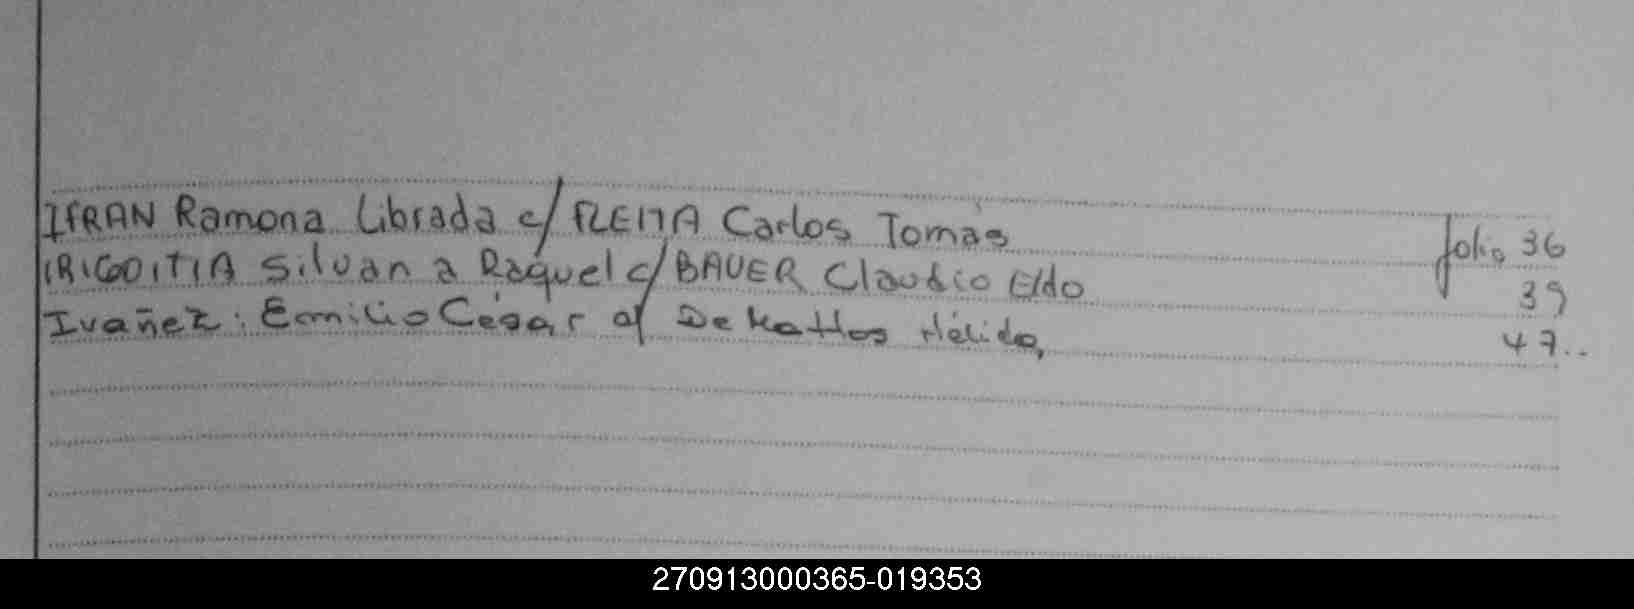 IFRAN Ramona Librada c/ FLEITA Carlos Tomás folio 36
IRIGOITIA Silvana Raquel c/ BAUER Claudio Eldo 39
Ivañez: Emilio César c/ De Mattos Hélida, 47..
270913000365-019353